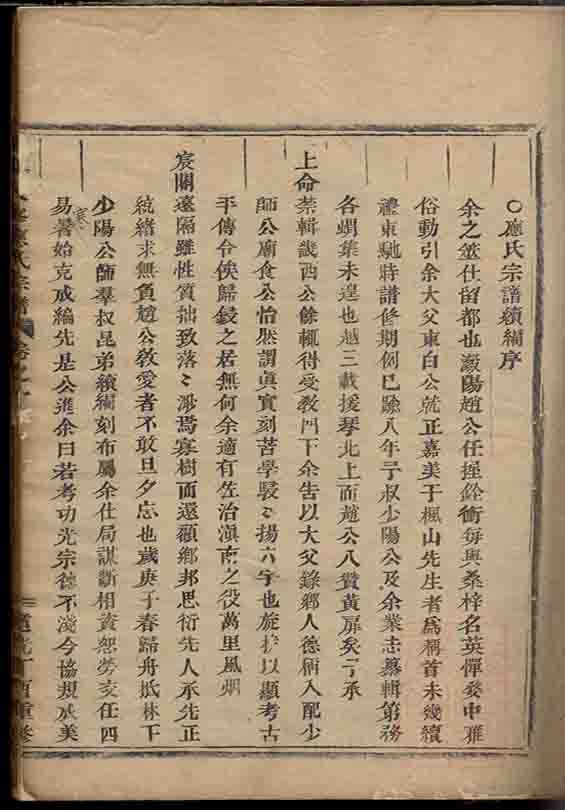 ○應氏宗譜續編序
余之筮仕留都也瀫陽趙公任握銓衝每與桑梓名英憚婺中雅
俗動引余大父東白公就正嘉美于楓山先生者爲稱首未幾續
禮東馳時譜修期例已踰八年亏叔少陽公及余業志纂輯第務
各蝟集未遑也越三載援琴北上而趙公八贊黃扉矣亏承
上命禁輯畿西公餘輒得受教門下余吿以大父錄鄉人德柄入配少
師公廟食公怡然謂眞實刻苦學駸〻揚六字也旋扩以顯考古
平傳令俟歸鋟之居無何余適有佐治滇南之役萬里風烟
宸關遠隔雖性質拙致落〻渺焉寡樹而還顧鄉邦思衍先人承先正
統緒求無負趙公教愛者不敢旦夕忘也歲庚子春歸舟抵林下
少陽公師羣叔昆弟續編刻布屬余仕局謀斷相資恕勞交任四
易暑始克成編先是公進余曰若考功光宗德不淺今協規成美
寒
應氏宗譜
道光丁酉重修